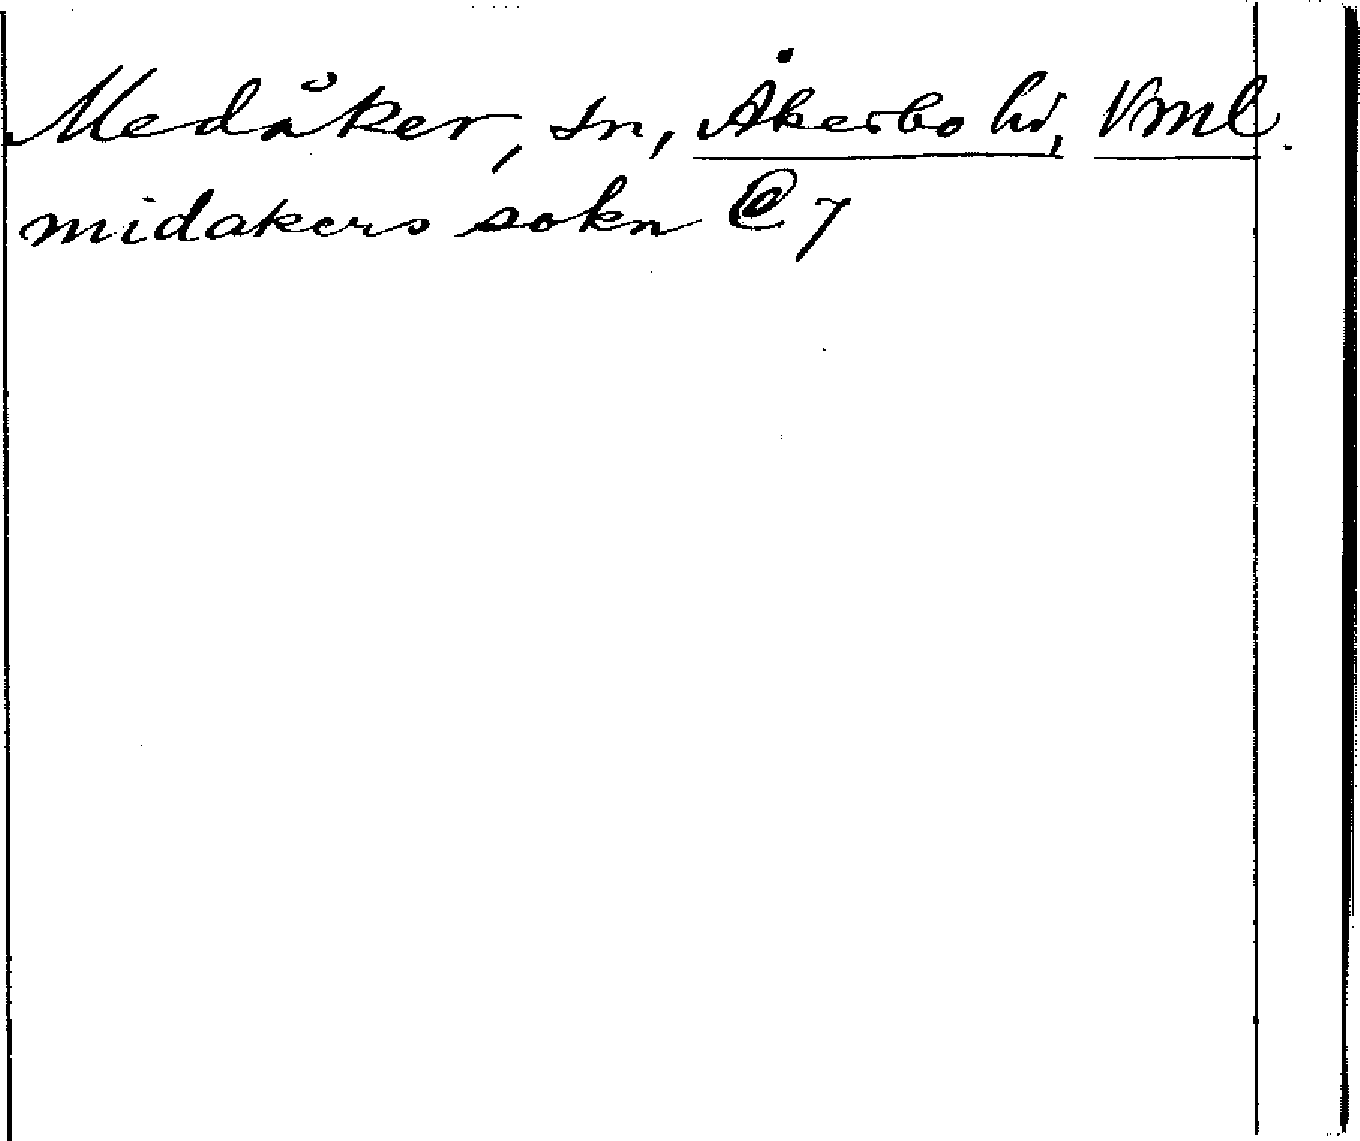 Medåker, sn, Åkerbo hd, Vml.
midakers sokn @ 7